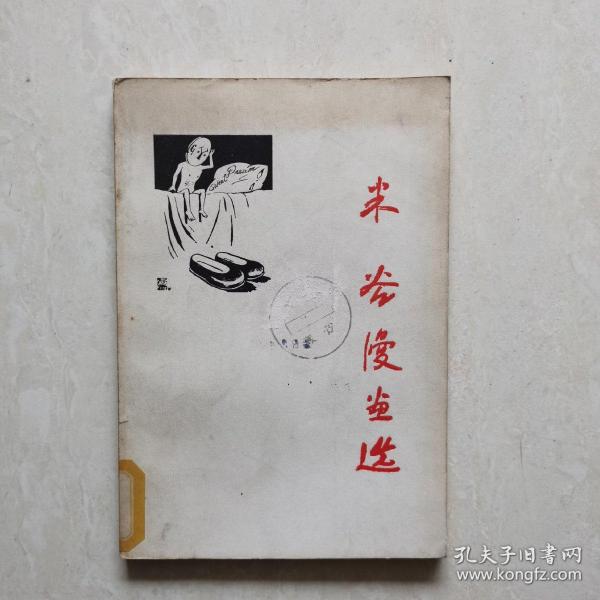 米谷漫画选
Sweet Dream
孔夫子旧书网
www.kongfz.com